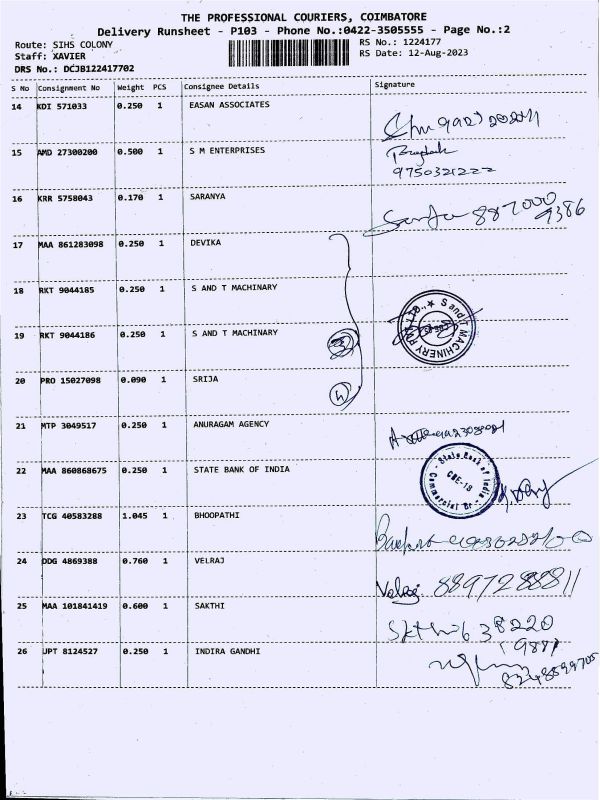 THE PROFESSIONAL COURIERS, COIMBATORE
Delivery Runsheet - P103 - Phone No.:0422-3505555 - Page No.:2
Route: SIHS COLONY
RS No.: 1224177
Staff: XAVIER
RS Date: 12-Aug-2023
DRS No.: DCJB122417702
S No Consignment No Weight PCS Consignee Details Signature
14 KDI 571033 0.250 1 EASAN ASSOCIATES
15 AMD 27300200 0.500 1 S M ENTERPRISES
9750321222
16 KRR 5758043 0.170 1 SARANYA
887000
9386
17 MAA 861283098 0.250 1 DEVIKA
18 RKT 9044185 0.250 1 S AND T MACHINARY
19 RKT 9044186 0.250 1 S AND T MACHINARY
20 PRO 15027098 0.090 1 SRIJA
21 MTP 3049517 0.250 1 ANURAGAM AGENCY
22 MAA 860868675 0.250 1 STATE BANK OF INDIA
State Bank of India
CBE-18
Commercial Br
23 TCG 40583288 1.045 1 BHOOPATHI
24 DDG 4869388 0.760 1 VELRAJ
Velraj. 8897288811
25 MAA 101841419 0.600 1 SAKTHI
638220
26 UPT 8124527 0.250 1 INDIRA GANDHI